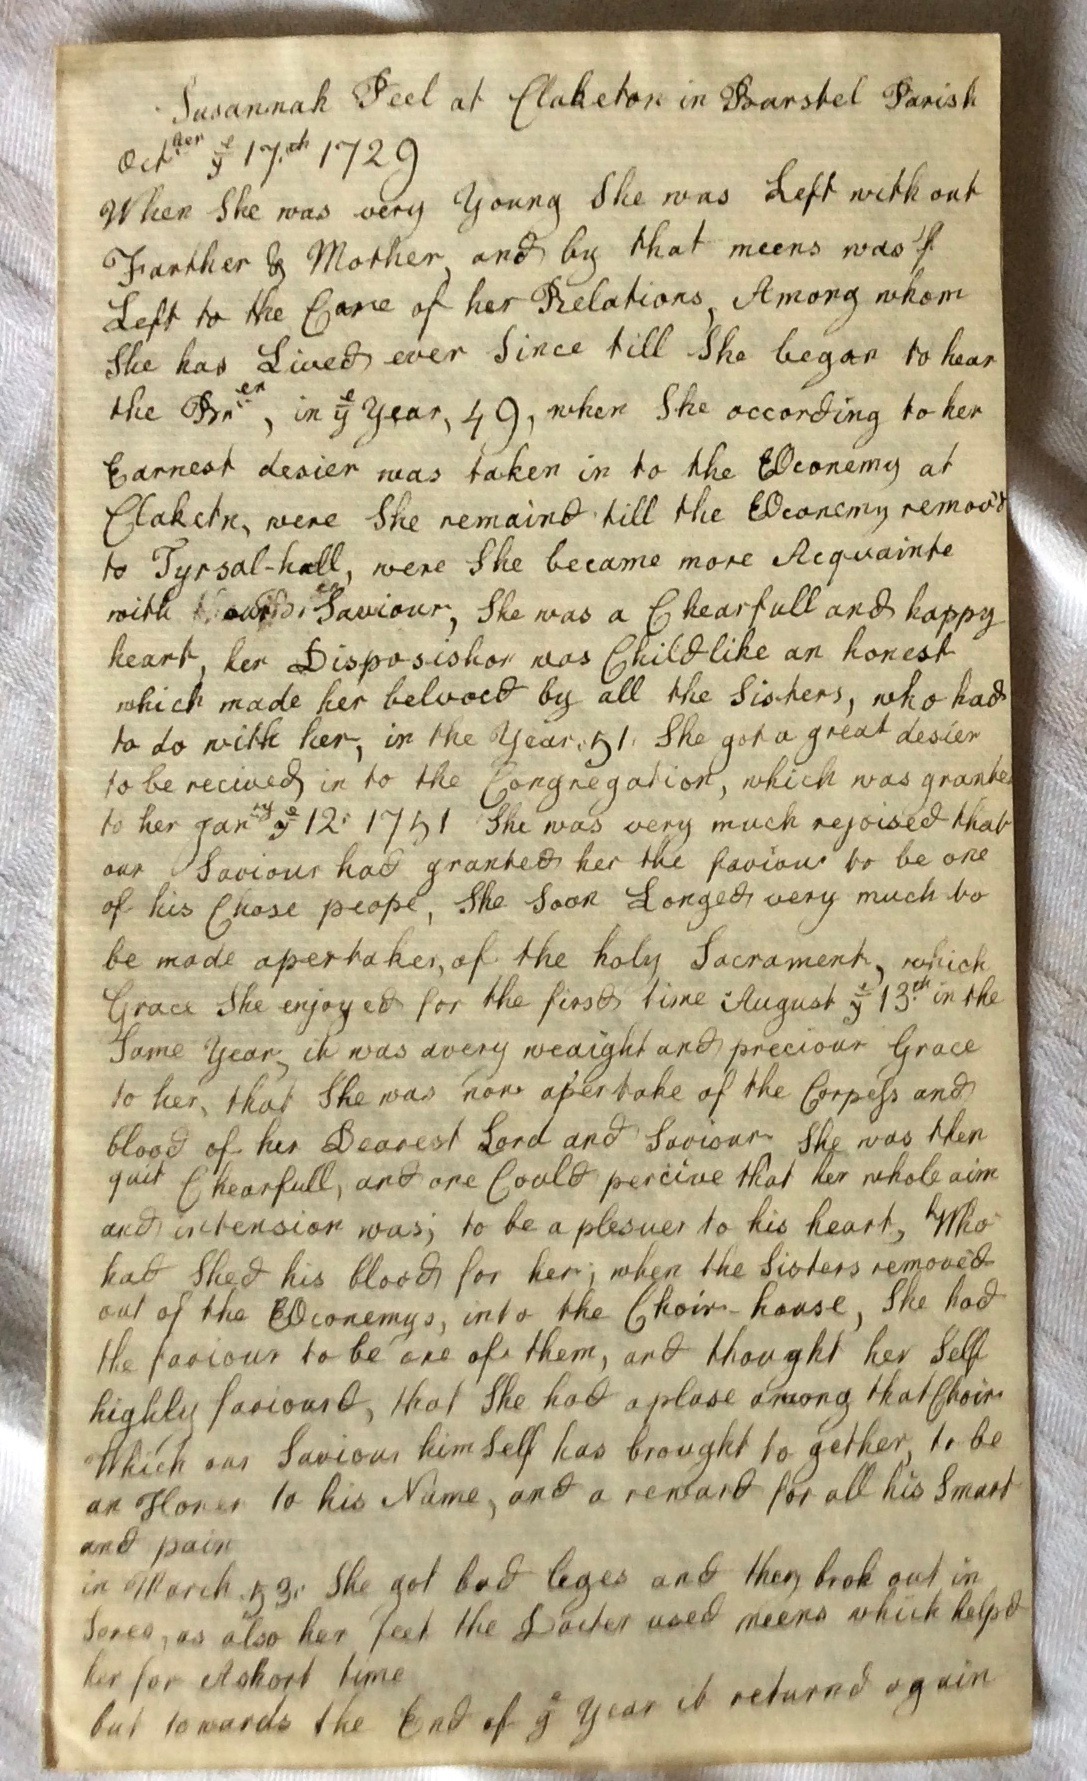 Susannah Peel at Claketon in Barstel Parish
Octber ye 17.th 1729
When She was very Young She was Left with out
Farther & Mother, and by that meens was
Left to the Care of her Relations, Among whom
She has Lived ever Since till She began to hear
the Bren, in ye Year, 49, when She according to her
Earnest desier was taken in to the Œconemy at
Claketn, were She remaind till the Œconemy remov'd
to Tyrsal-hall, were She became more Acquainte
with our Saviour, She was a Chearfull and happy
heart, her Disposishon was Childlike an honest
which made her belvoed by all the Sisters, who had
to do with her, in the Year, 51, She got a great desier
to be recived in to the Congregation, which was grante
to her Janry ye 12. 1751 She was very much rejoised that
our Saviour had granted her the faviour to be one
of his Chose peope, She Soon Longed very much to
be made apertaker, of the holy Sacrament, which
Grace She enjoyed for the first time August ye 13th in the
Same Year, it was avery weaight and preciour Grace
to her, that She was now apertake of the Corpess and
blood of her Dearest Lord and Saviour She was then
quit Chearfull, and one Could percive that her whole aim
and intension was; to be a plesuer to his heart, Who
had Shed his blood for her; when the Sisters removed
out of the Œconemys, into the Choir-house, She had
the faviour to be one of them, and thought her Self
highly faviourd, that She had aplase among that Choir
Which our Saviour him Self has brought to gether, to be
an Honer to his Name, and a reward for all his Smart
and pain
in March .53. She got bad leges and they brok out in
Sores, as also her feet the Docter used meens which helpd
her for Ashort time
but towards the End of ye Year it returnd again